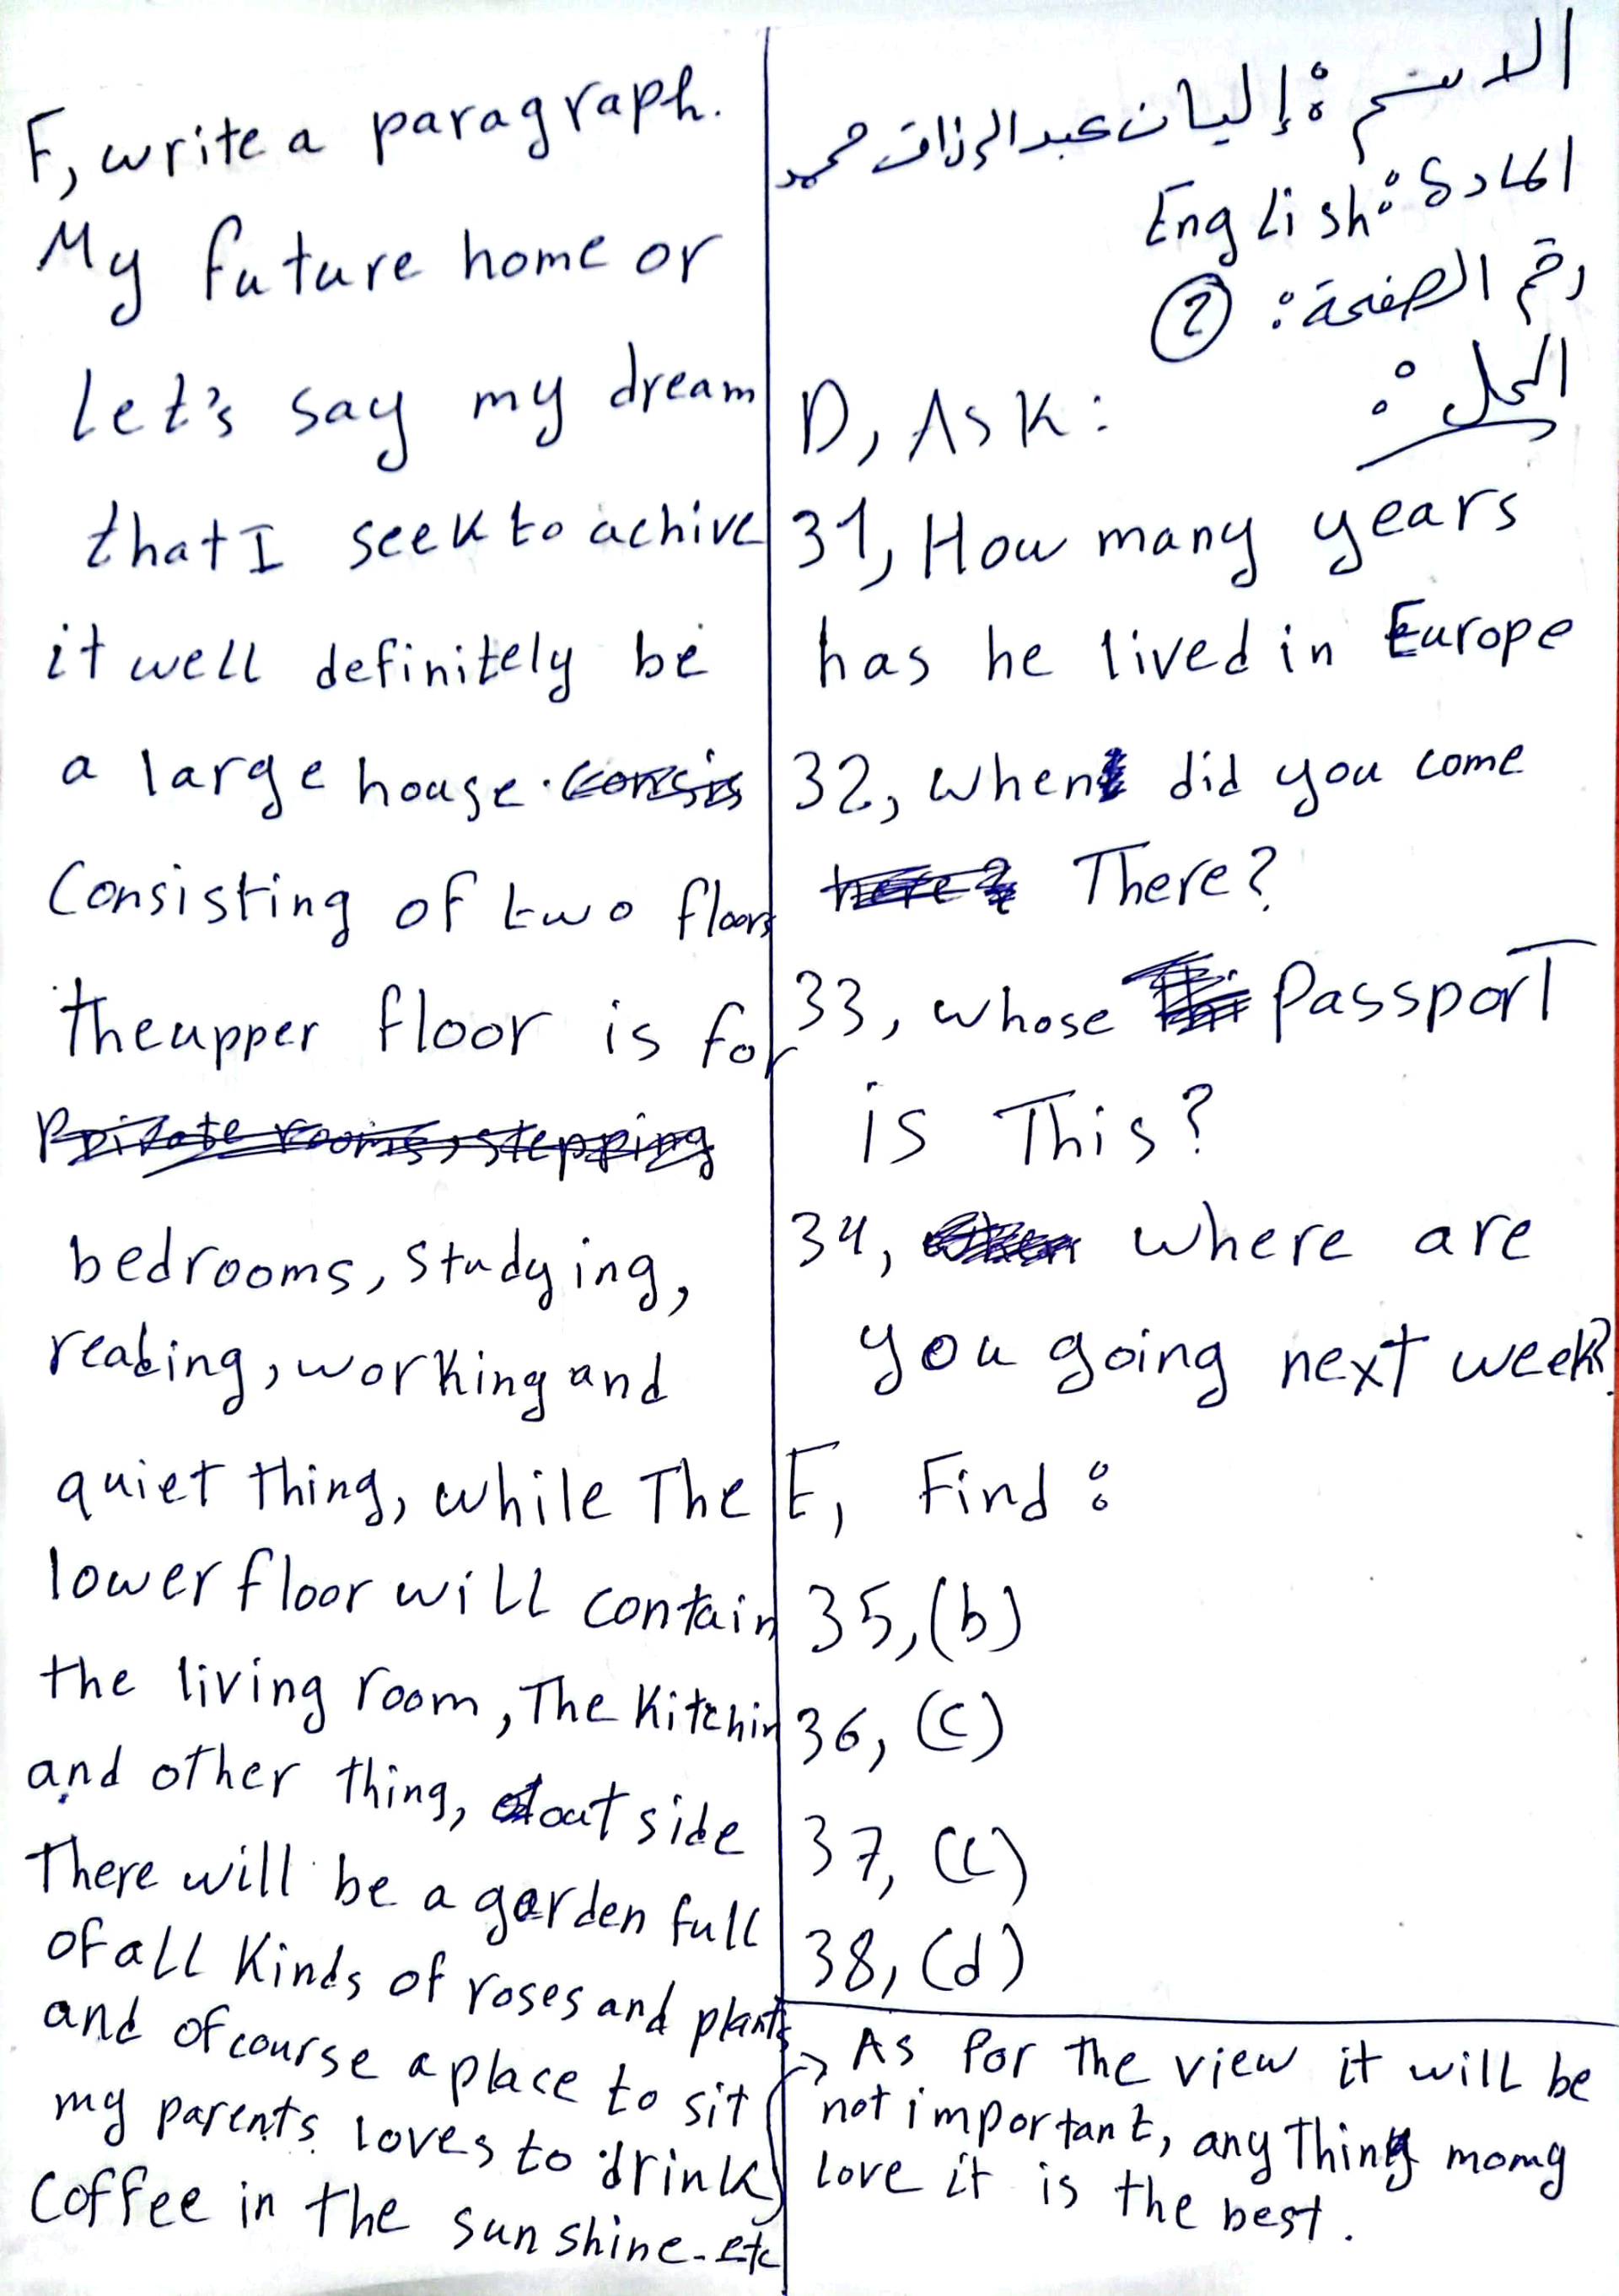 الاسم : إليان عبد الرزاق محمد
المادة : English
رقم الصفحة : 2
الحل :
D, Ask :
31, How many years
has he lived in Europe
32, when did you come
here? There?
33, whose Passport
is This?
34, where are
you going next week?
E, Find :
35, (b)
36, (c)
37, (c)
38, (d)
F, write a paragraph.
My future home or
Let's say my dream
that I seek to achive
it well definitely be
a large house. consis
Consisting of two floors
the upper floor is for
Private rooms, stepping
bedrooms, studying,
reading, working and
quiet thing, while The
lower floor will contain
the living room, The Kitchin
and other thing, out side
There will be a garden full
of all Kinds of roses and plants
and of course a place to sit
my parents loves to drink
Coffee in the sun shine. etc
→ As for the view it will be
not important, any Thing momy
love it is the best.